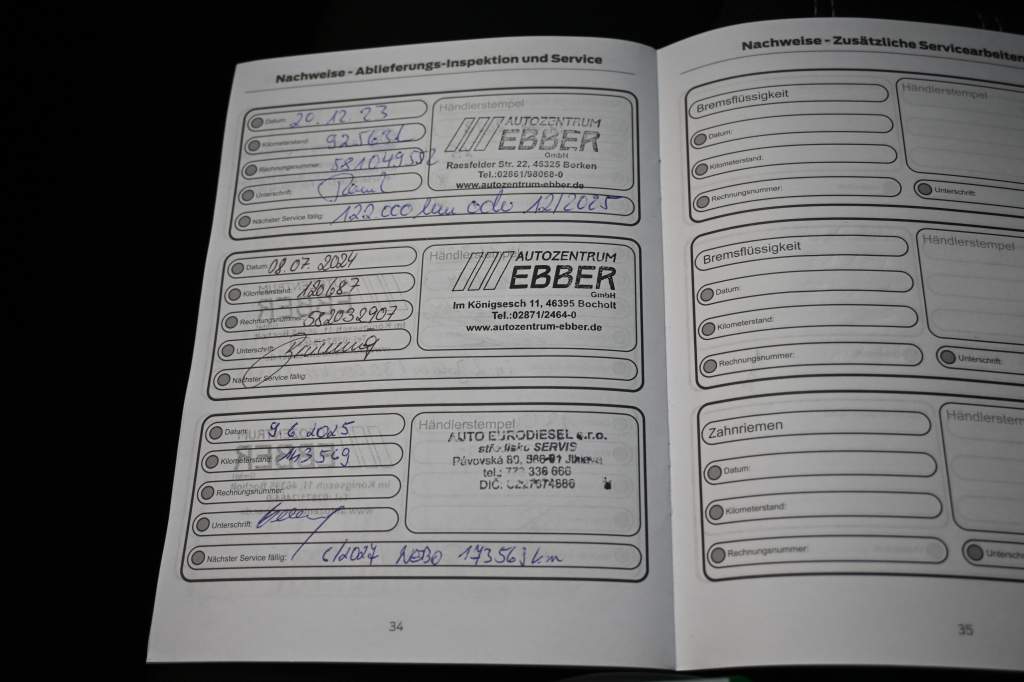 Nachweise - Ablieferungs-Inspektion und Service
Datum: 20.12.23
Kilometerstand:
Rechnungsnummer:
Unterschrift:
Nächster Service fällig: 122 000 km odo 12/2025
Händlerstempel
AUTOZENTRUM
EBBER
GmbH
Raesfelder Str. 22, 46325 Borken
Tel.:02861/98068-0
www.autozentrum-ebber.de
Datum: 08.07.2024
Kilometerstand: 120687
Rechnungsnummer: 582032907
Unterschrift:
Nächster Service fällig:
Händlerstempel
AUTOZENTRUM
EBBER
GmbH
Im Königsesch 11, 46395 Bocholt
Tel.:02871/2464-0
www.autozentrum-ebber.de
Datum: 9.6.2025
Kilometerstand: 143549
Rechnungsnummer:
Unterschrift:
Nächster Service fällig: NEBO km
Händlerstempel
AUTO EURODIESEL s.r.o.
středisko SERVIS
Pávovská 80,
tel.: 336 666
DIČ:
34
Nachweise - Zusätzliche Servicearbeiten
Bremsflüssigkeit
Datum:
Kilometerstand:
Rechnungsnummer:
Unterschrift:
Händlerstempel
Bremsflüssigkeit
Datum:
Kilometerstand:
Rechnungsnummer:
Unterschrift:
Händlerstempel
Zahnriemen
Datum:
Kilometerstand:
Rechnungsnummer:
Unterschrift
Händlerstempel
35